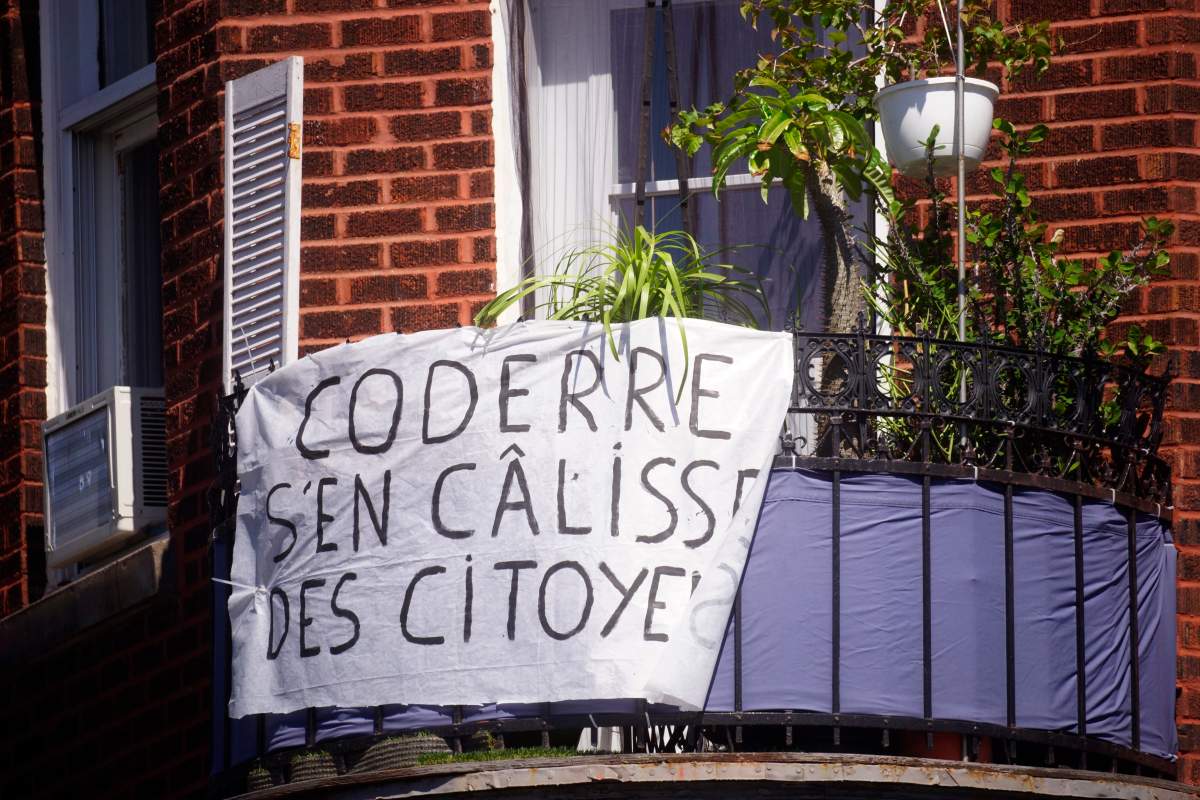 CODERRE
S'EN CÂLISSE
DES CITOYENS